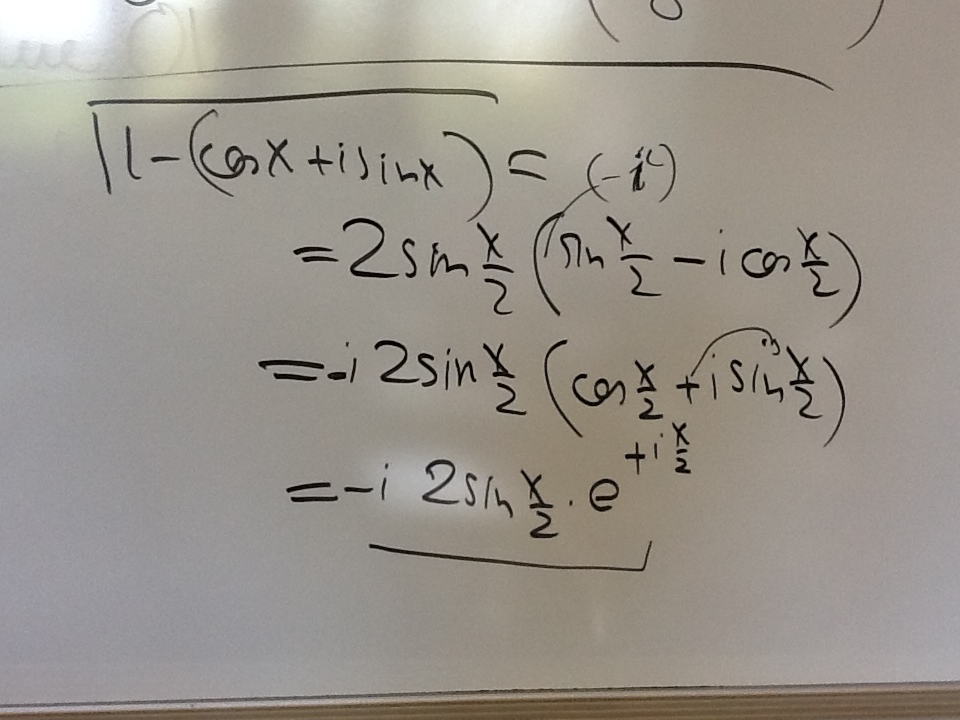 1-(cosx+isinx) = (-i²)
=2sin x/2 (sin x/2 - i cos x/2)
=-i 2sin x/2 (cos x/2 + i sin x/2)
=-i 2sin x/2 . e^{+i x/2}